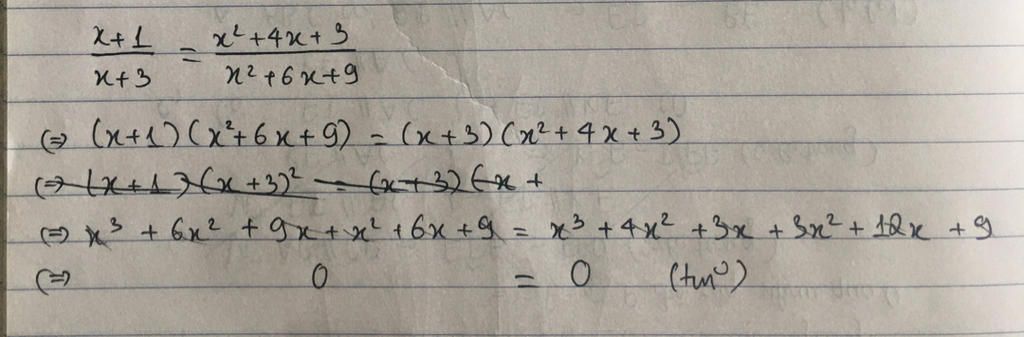 (x+1)/(x+3) = (x²+4x+3)/(x²+6x+9)
(⇒) (x+1)(x²+6x+9) = (x+3)(x²+4x+3)
(⇒) (x+1)(x+3)² = (x+3)(x+
(⇒) x³ + 6x² + 9x + x² + 6x + 9 = x³ + 4x² + 3x + 3x² + 12x + 9
(⇒) 0 = 0